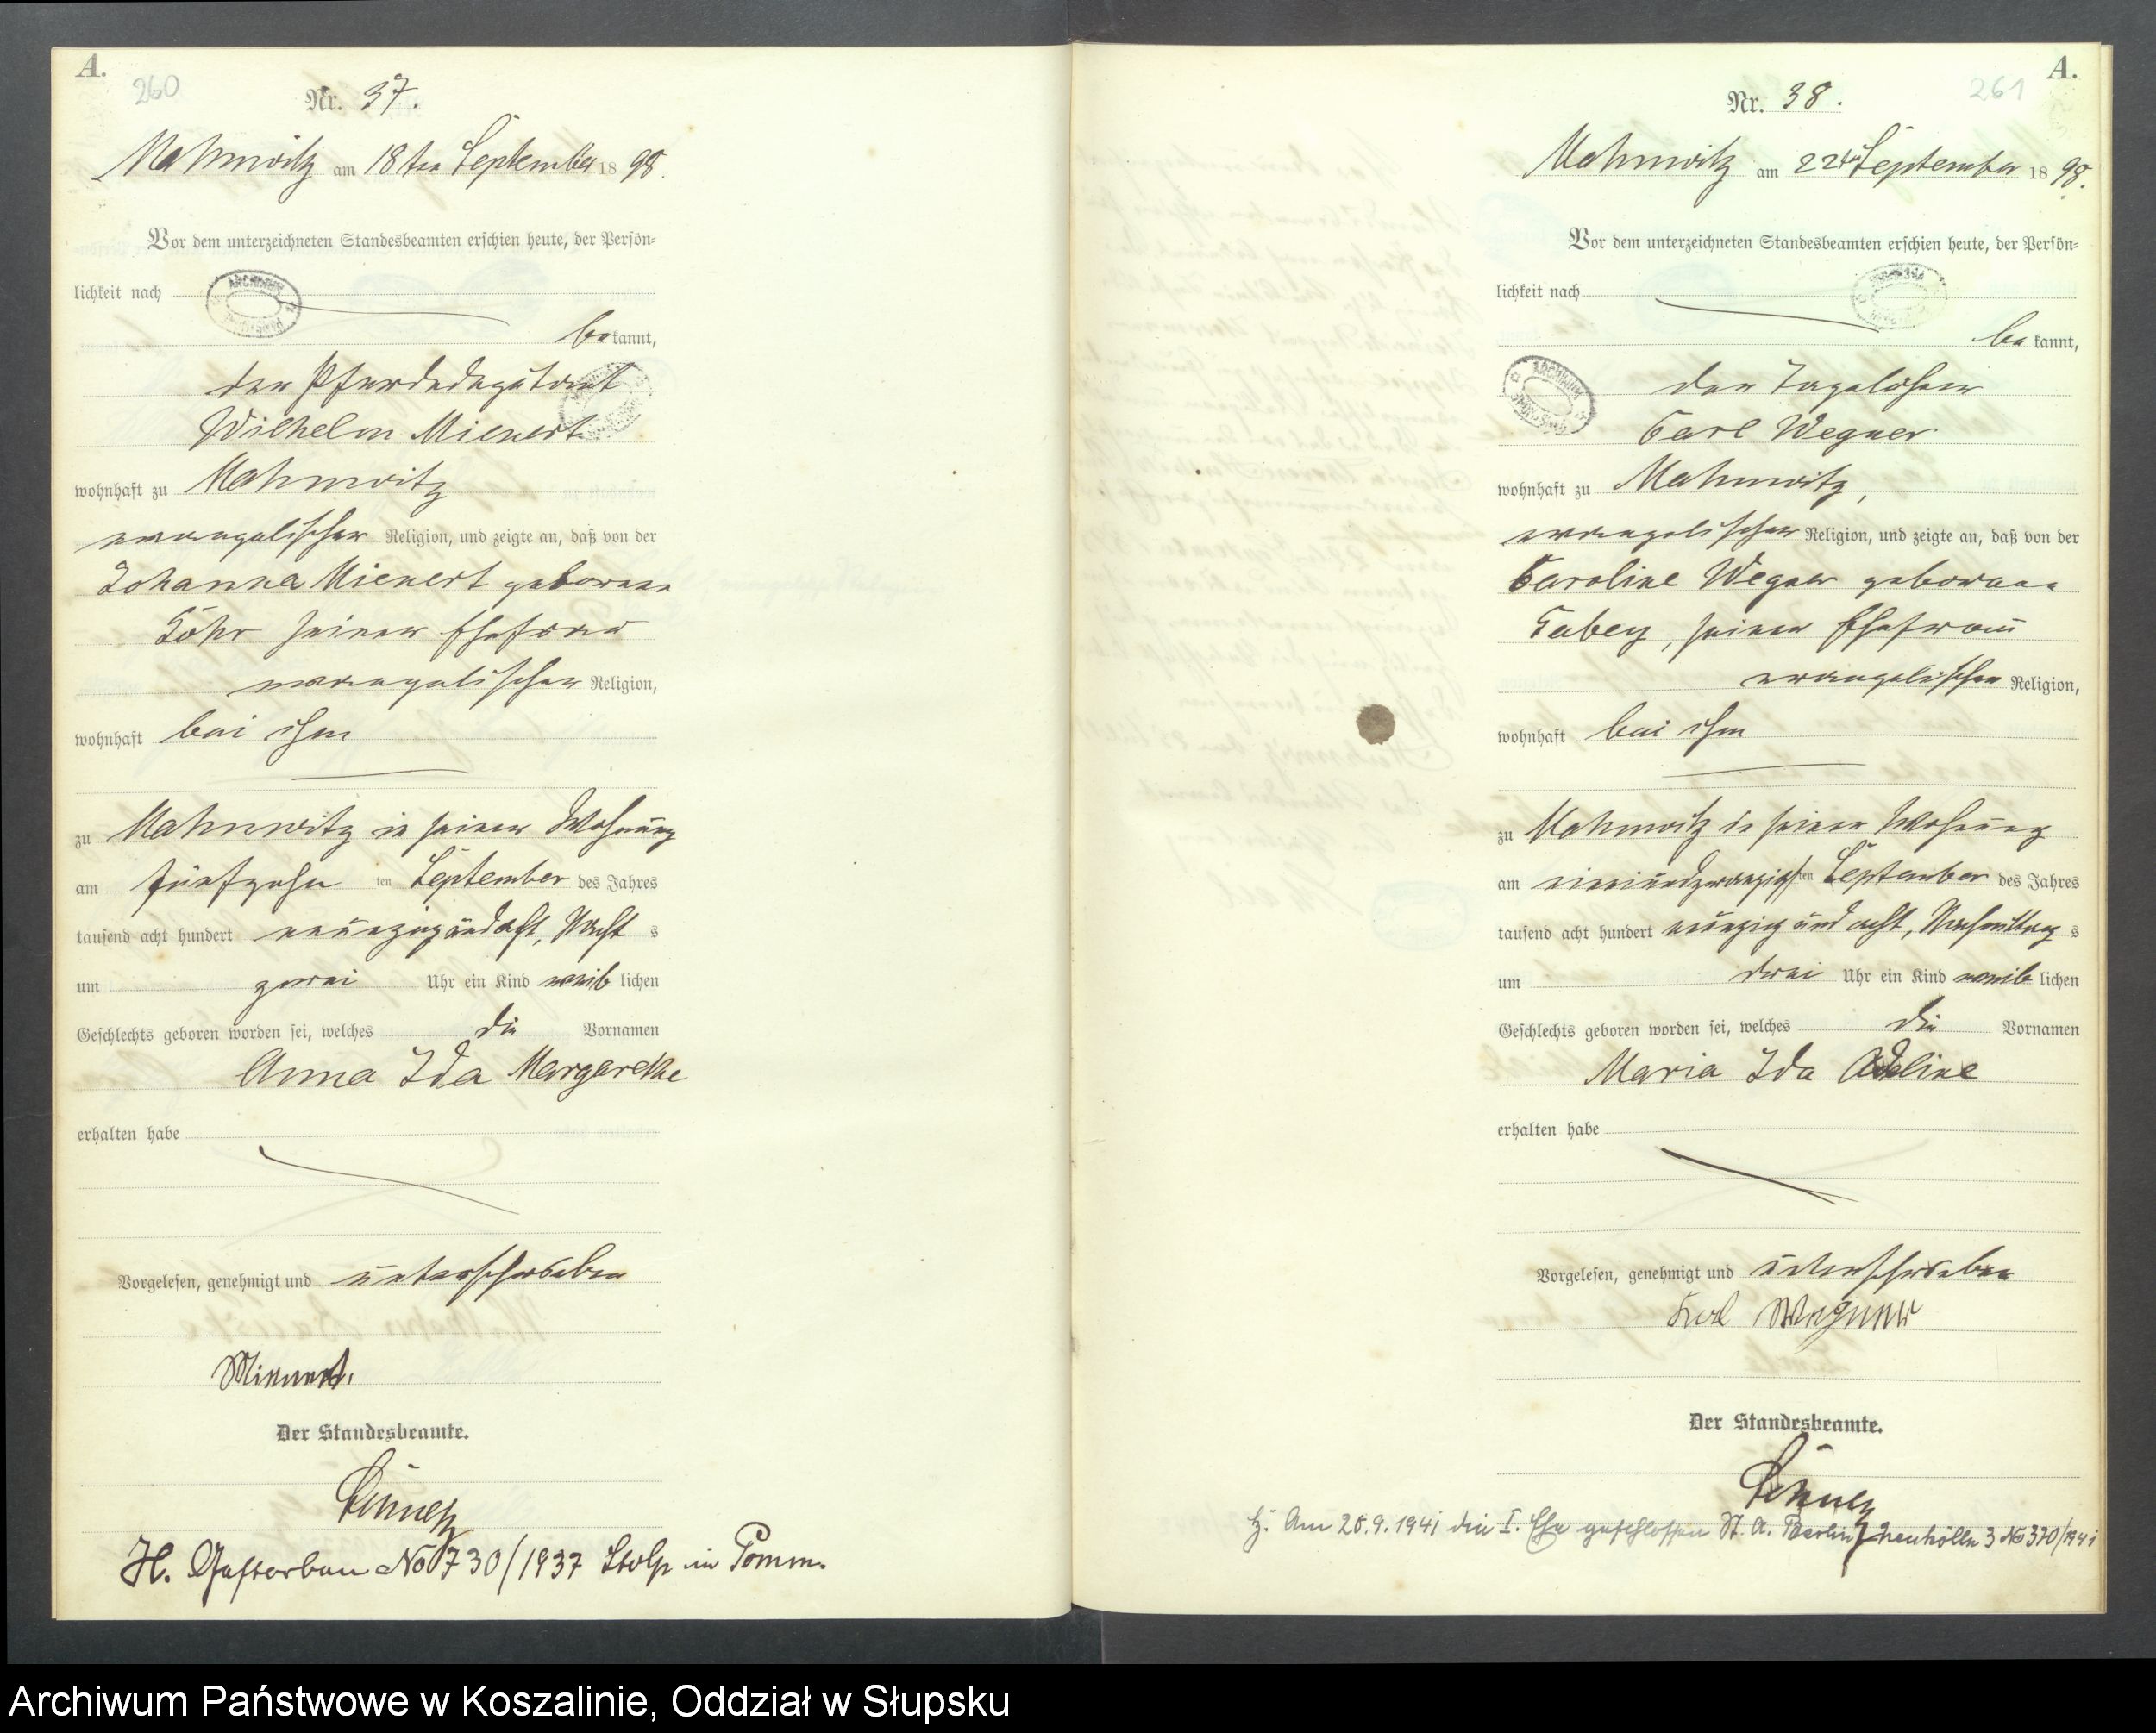 A.
260
Nr. 37.
Mahnwitz am 18ten September 1898.
Vor dem unterzeichneten Standesbeamten erschien heute, der Persön=
lichkeit nach
bekannt,
der
Wilhelm Mienert
wohnhaft zu Mahnwitz
evangelischer Religion, und zeigte an, daß von der
Johanna Mienert geborene
seiner Ehefrau
evangelischer Religion,
wohnhaft bei ihm
zu Mahnwitz in seiner Wohnung
am fünfzehn ten September des Jahres
tausend acht hundert neunzig und acht, Nacht s
um zwei Uhr ein Kind weiblichen
Geschlechts geboren worden sei, welches die Vornamen
Anna Ida Margarethe
erhalten habe
Vorgelesen, genehmigt und unterschrieben
Mienert.
Der Standesbeamte.
H. Gestorben No 730/1937 Stolp in Pomm.
A.
261
Nr. 38.
Mahnwitz am 22ten September 1898.
Vor dem unterzeichneten Standesbeamten erschien heute, der Persön=
lichkeit nach
bekannt,
der Tagelöhner
Carl Wegner
wohnhaft zu Mahnwitz,
evangelischer Religion, und zeigte an, daß von der
Caroline Wegner geborene
seiner Ehefrau
evangelischer Religion,
wohnhaft bei ihm
zu Mahnwitz in seiner Wohnung
am einundzwanzigsten September des Jahres
tausend acht hundert neunzig und acht, Nachmittags
um drei Uhr ein Kind weiblichen
Geschlechts geboren worden sei, welches die Vornamen
Maria Ida Adeline
erhalten habe
Vorgelesen, genehmigt und unterschrieben
Karl Wegner
Der Standesbeamte.
H. Am 20.9.1941 die I. Ehe geschlossen St. A. Berlin Neukölln 3 No 370/1941
Archiwum Państwowe w Koszalinie, Oddział w Słupsku